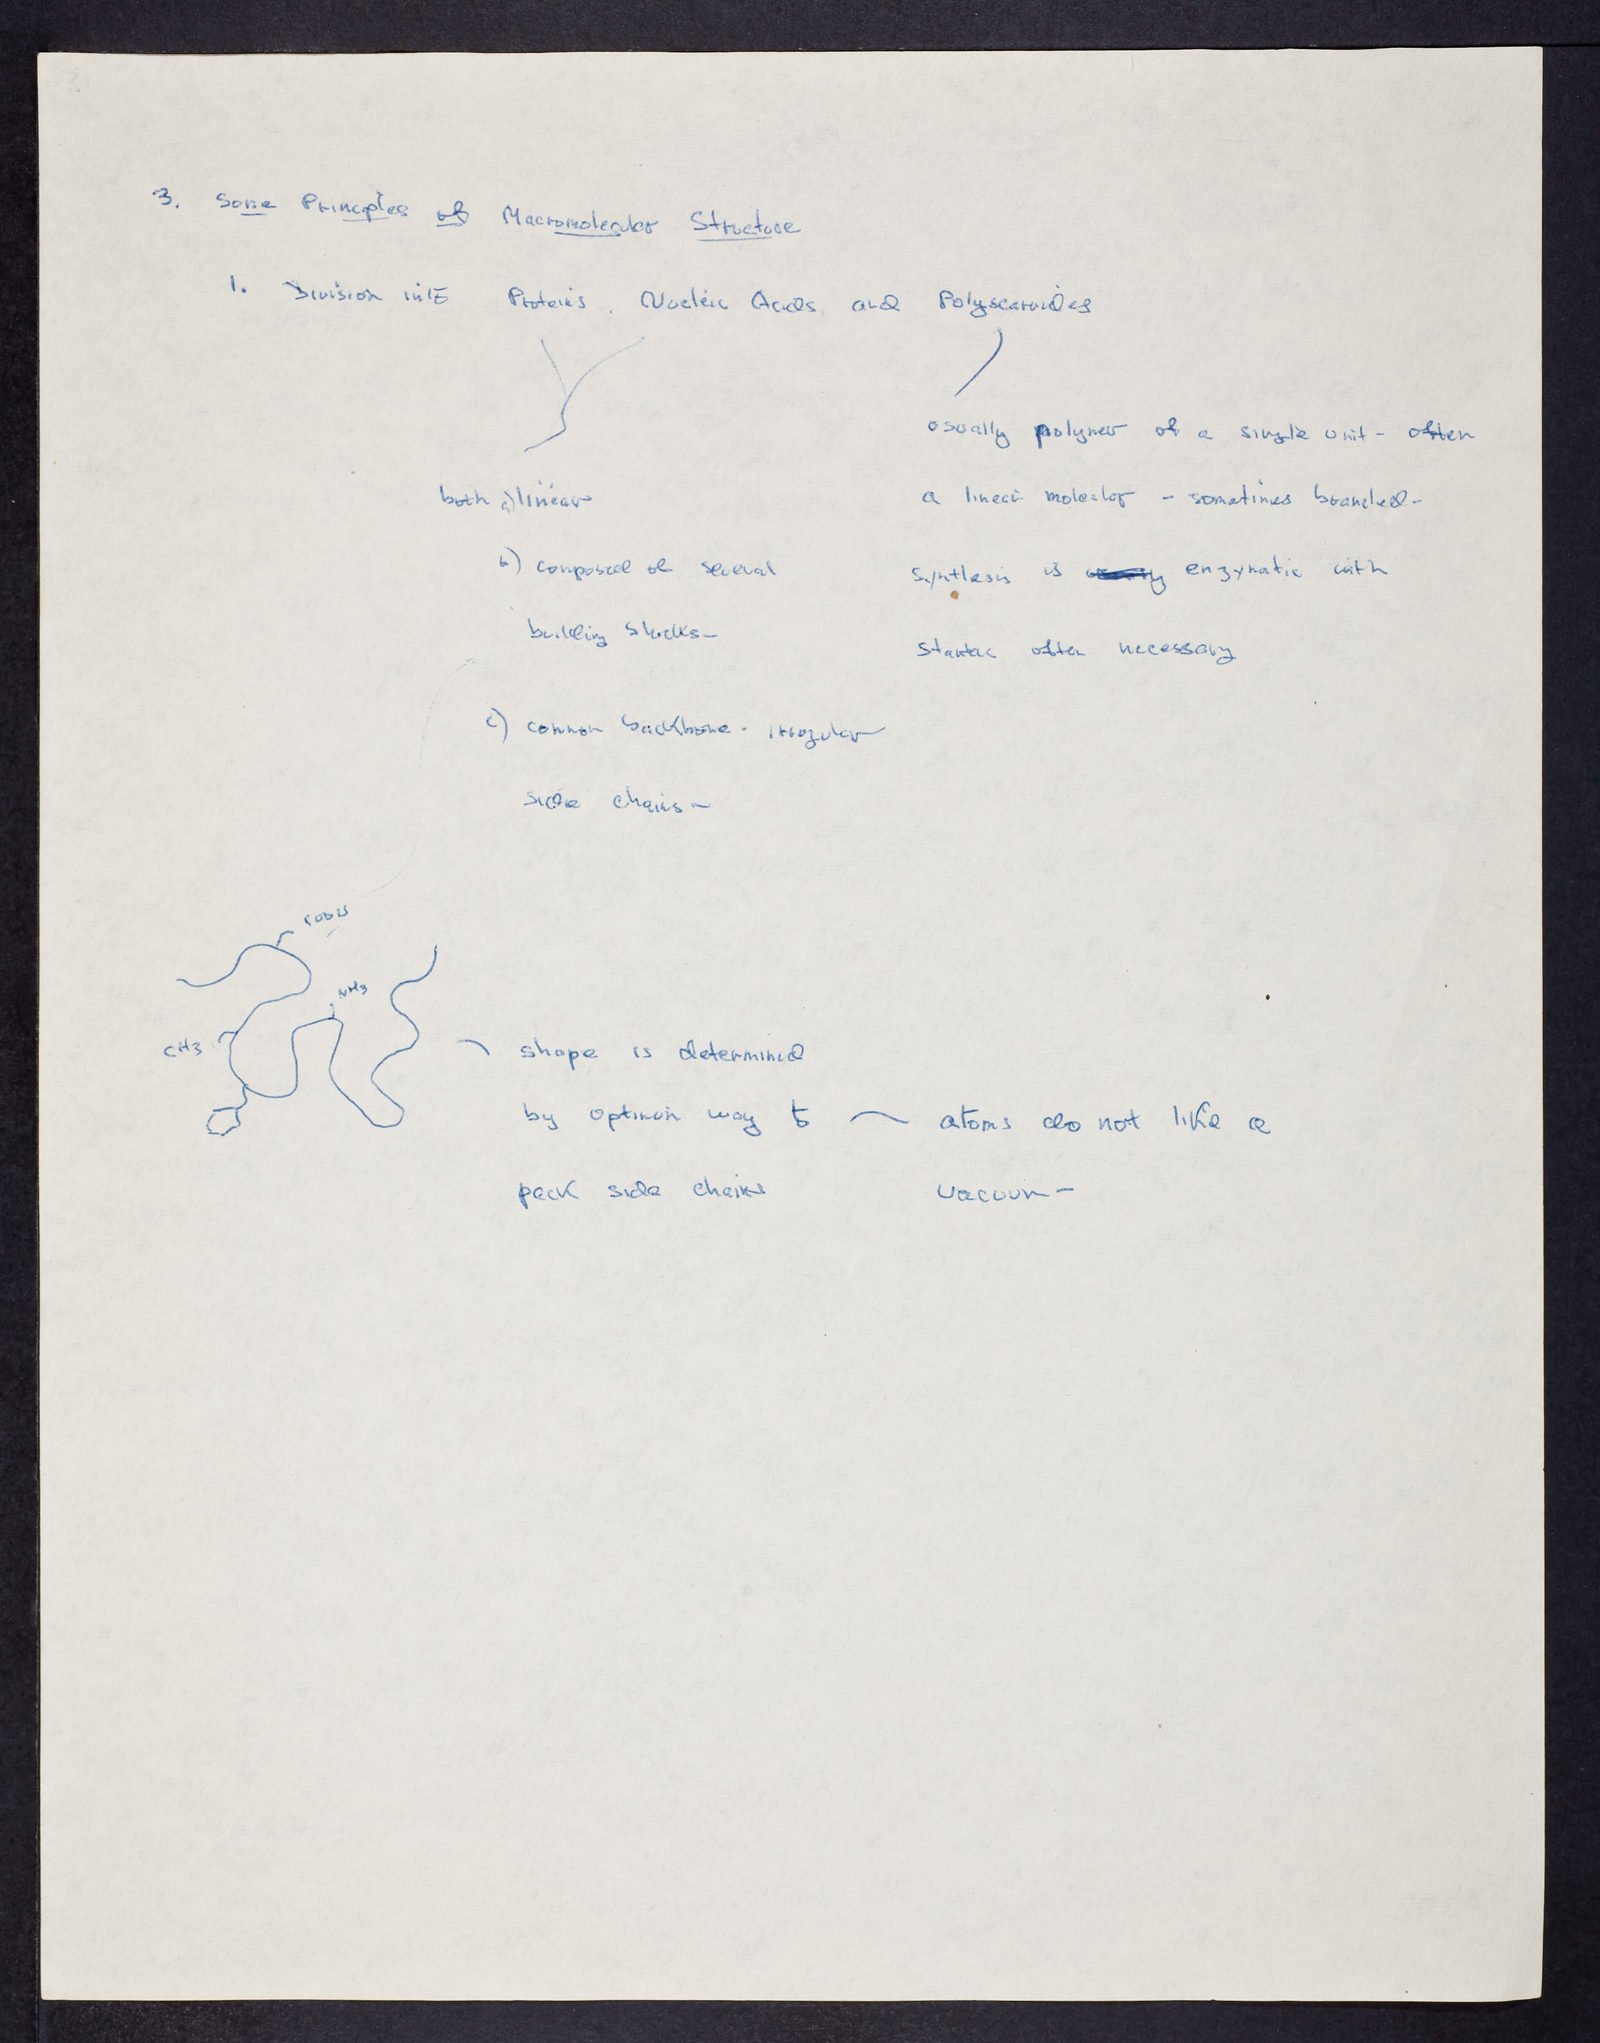 3. Some Principles of Macromolecular Structure
1. Division into Proteins, Nucleic Acids, and Polyscaroides
usually polymer of a single unit - often
both a) linear
a linear molecular - sometimes branched -
b) composed of several
synthesis is enzymatic with
building blocks -
starter often necessary
c) common backbone - irregular
side chains -
COOH
NH3
CH3
shape is determined
by optimum way to
atoms do not like a
pack side chains
vacuum -